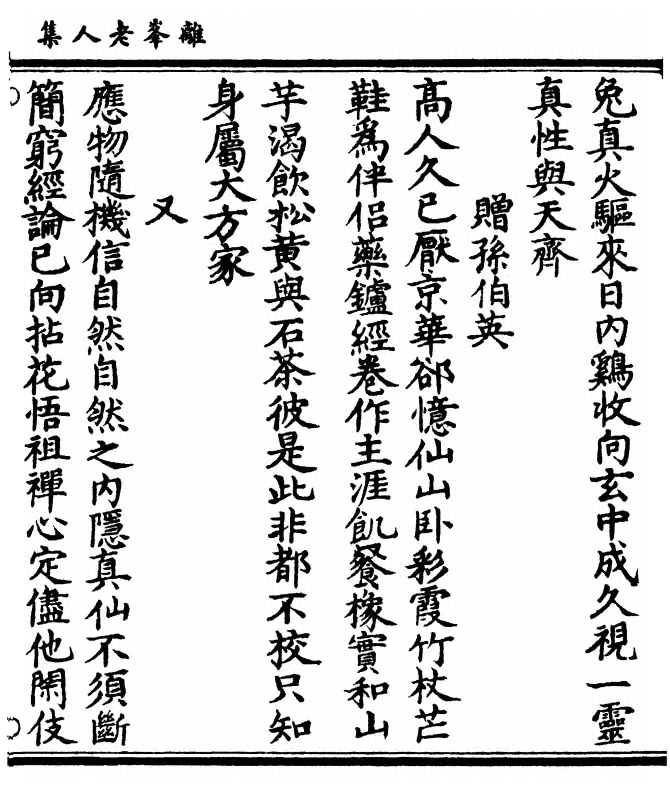 離峯老人集
兔真火驅來日內鷄收向玄中成久視一靈
真性與天齊
贈孫伯英
高人久已厭京華郤憶仙山卧彩霞竹杖芒
鞋爲伴侣藥鑪經卷作主涯飢餐橡實和山
芋渴飲松黄與石茶彼是此非都不挍只知
身屬大方家
又
應物隨機信自然自然之内隱真仙不須斷
簡窮經論已向拈花悟祖禪心定儘他閑伎